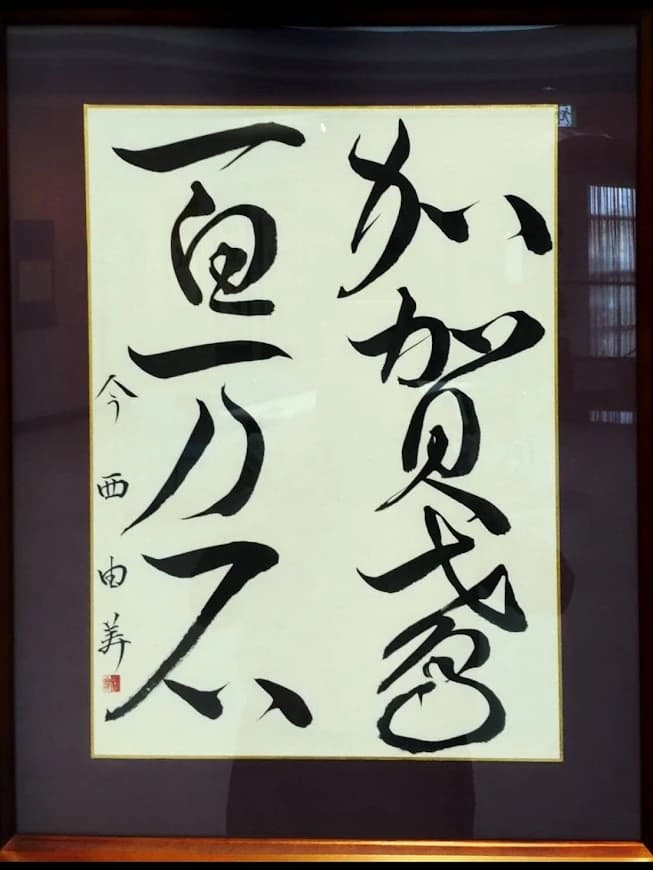 加賀鳶
百万石
今西由美